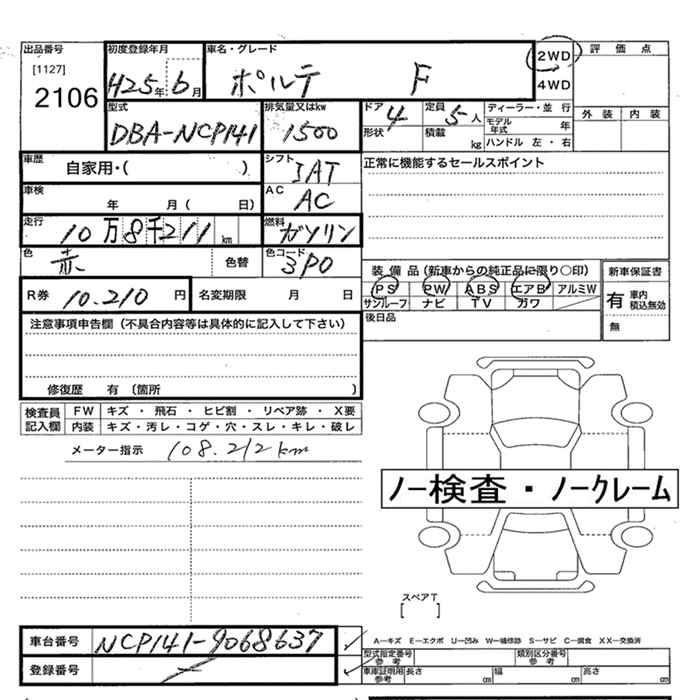 出品番号 初度登録年月 車名・グレード 2WD 評価点
[1127] 2106 H25年6月 ポルテ F 4WD
型式 排気量又はkw ドア 4 定員 5人 ディーラー・並行 外装 内装
DBA-NCP141 1500 形状 積載 kg モデル年式 年
ハンドル 左・右
車歴 自家用・( ) シフト IAT 正常に機能するセールスポイント
車検 年 月( 日) AC AC
走行 10万8千211 km 燃料 ガソリン
色 赤 色替 色コード 3P0 装備品(新車からの純正品に限り○印) 新車保証書
R券 10.210円 名変期限 月 日 PS PW ABS エアB アルミW 有 車内積込無効
サンルーフ ナビ TV ガワ
注意事項申告欄(不具合内容等は具体的に記入して下さい) 後日品 無
修復歴 有(箇所 )
検査員記入欄 FW キズ・飛石・ヒビ割・リペア跡・X要
内装 キズ・汚レ・コゲ・穴・スレ・キレ・破レ
メーター指示 108.212km
ノー検査・ノークレーム
スペアT
[ ]
車台番号 NCP141-9068637 A-キズ E-エクボ U-凹み W-補修跡 S-サビ C-腐食 XX-交換済
登録番号 ー 型式指定番号 参考 類別区分番号 参考
車庫証明用 参考 長さ cm 幅 cm 高さ cm